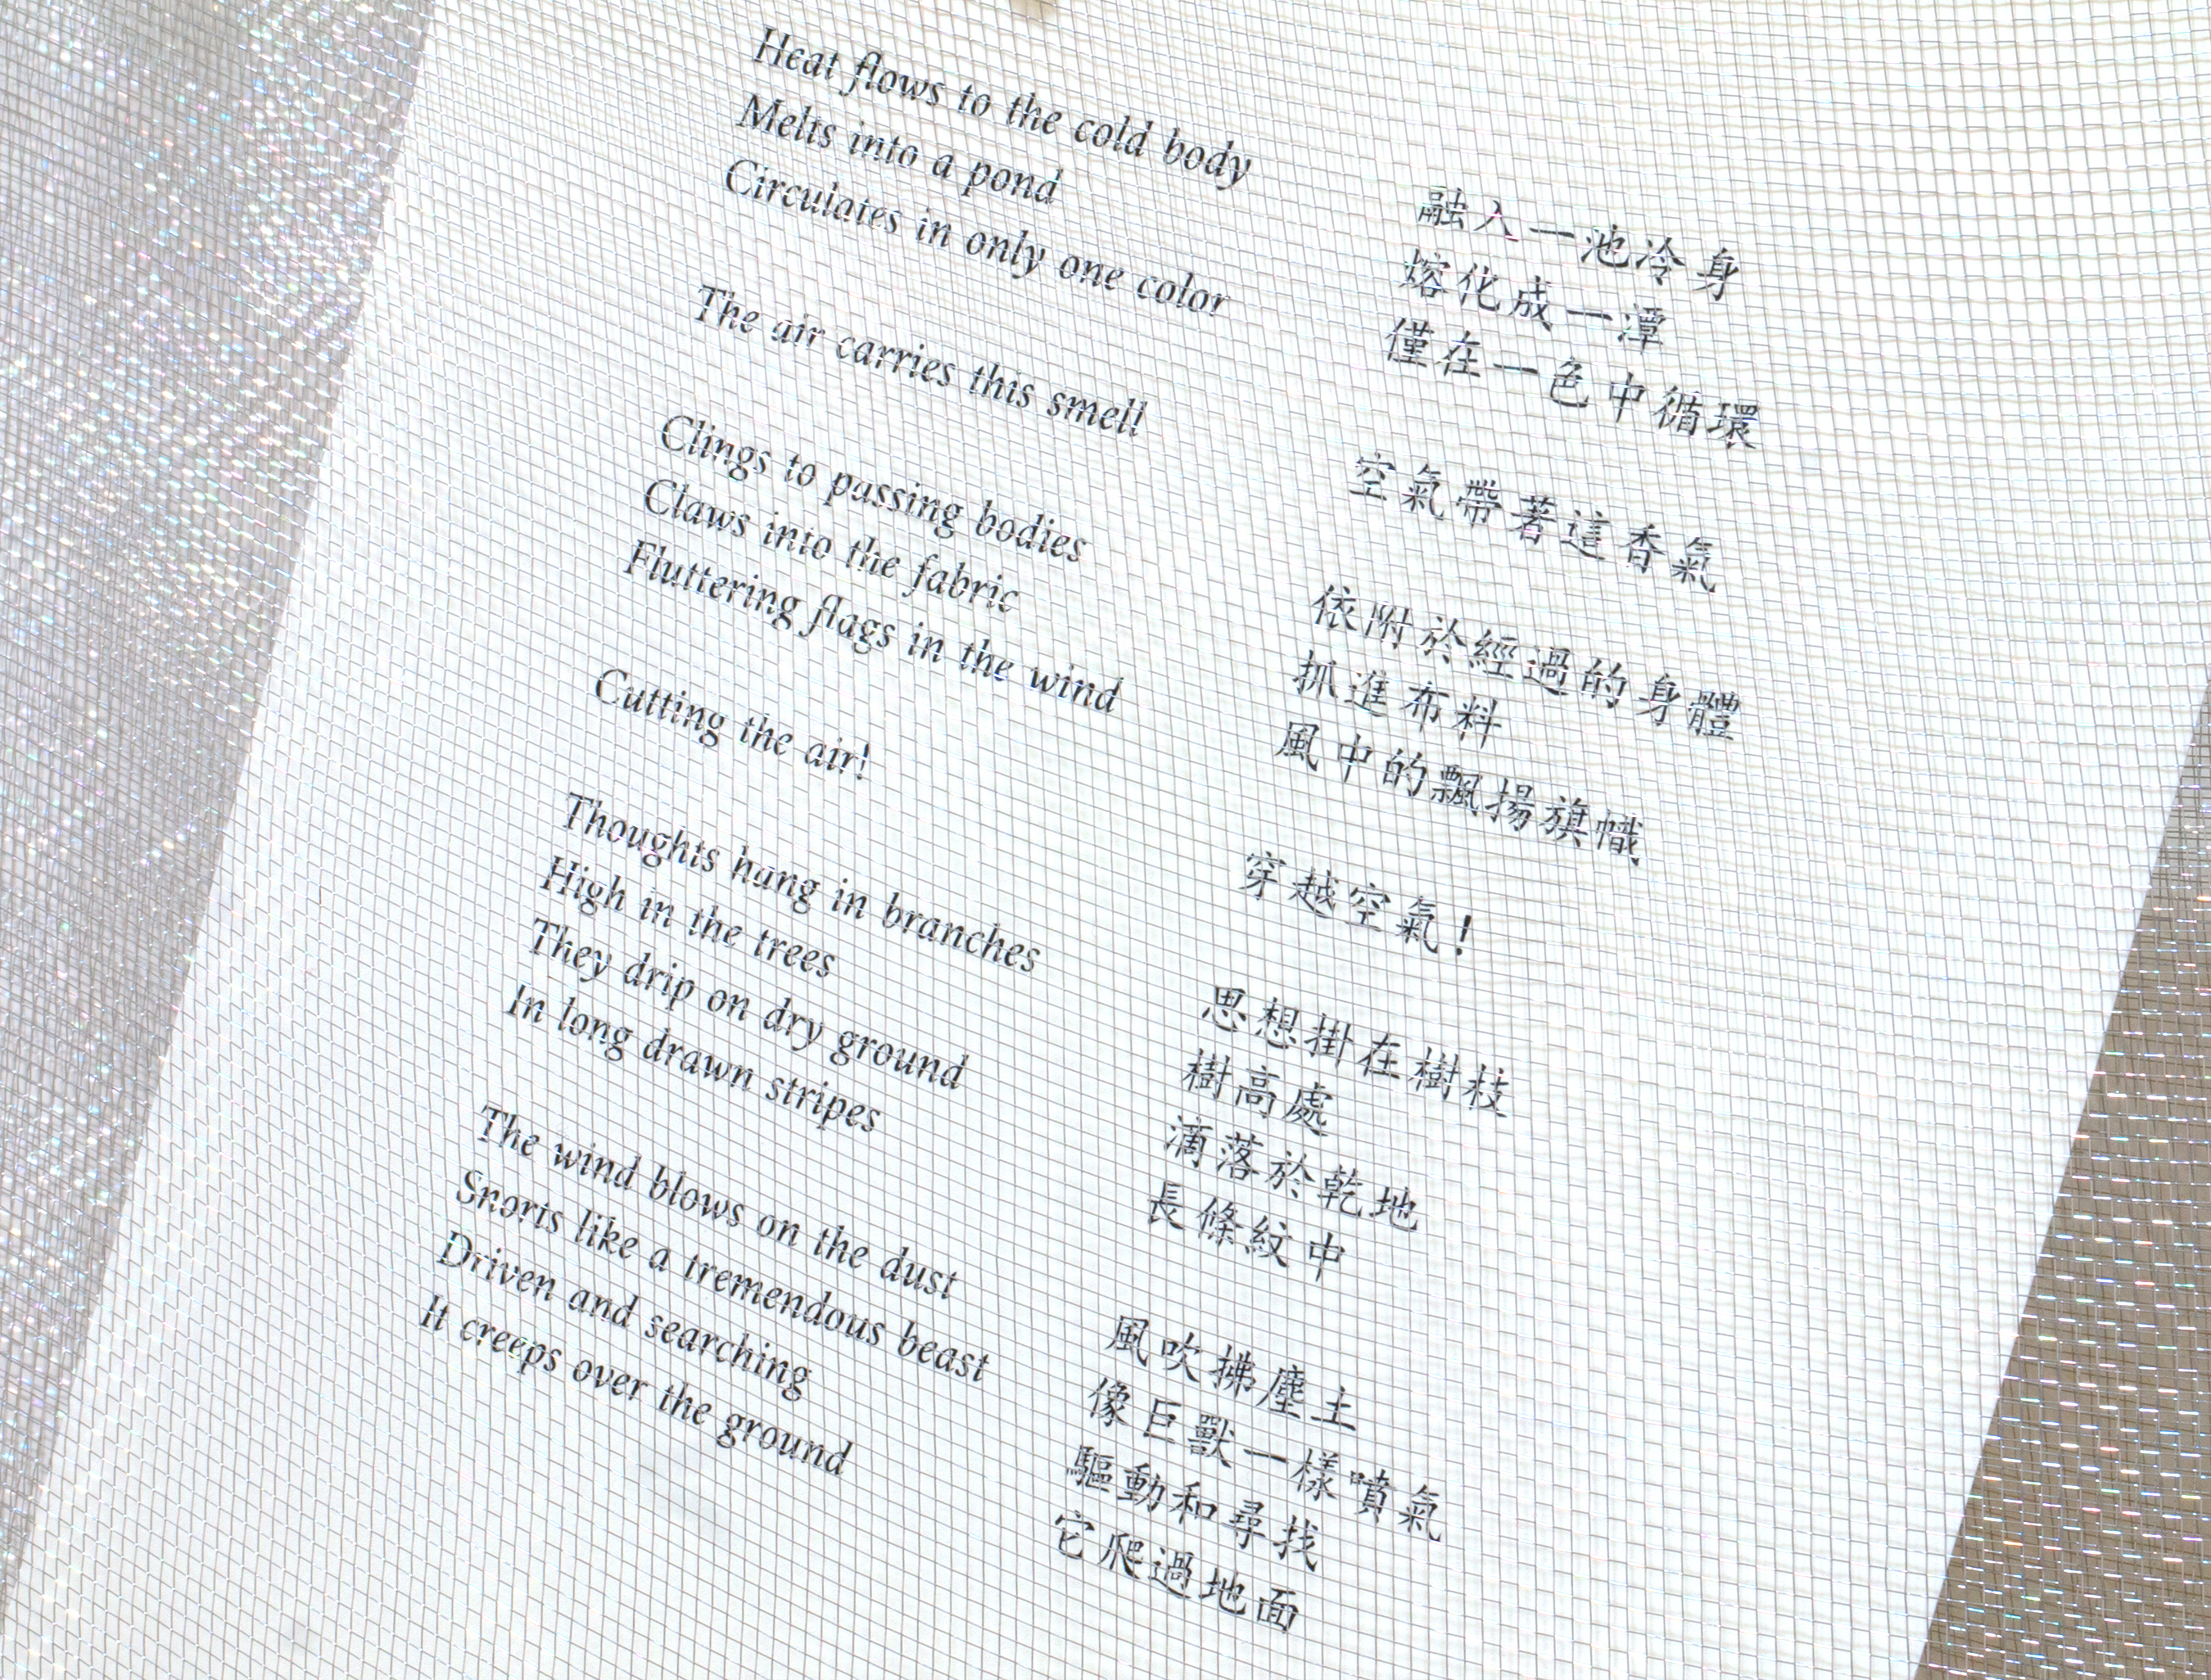 Heat flows to the cold body
Melts into a pond
Circulates in only one color
The air carries this smell
Clings to passing bodies
Claws into the fabric
Fluttering flags in the wind
Cutting the air!
Thoughts hang in branches
High in the trees
They drip on dry ground
In long drawn stripes
The wind blows on the dust
Snorts like a tremendous beast
Driven and searching
It creeps over the ground
融入一池冷身
熔化成一潭
僅在一色中循環
空氣帶著這香氣
依附於經過的身體
抓進布料
風中的飄揚旗幟
穿越空氣!
思想掛在樹枝
樹高處
滴落於乾地
長條紋中
風吹拂塵土
像巨獸一樣噴氣
驅動和尋找
它爬過地面